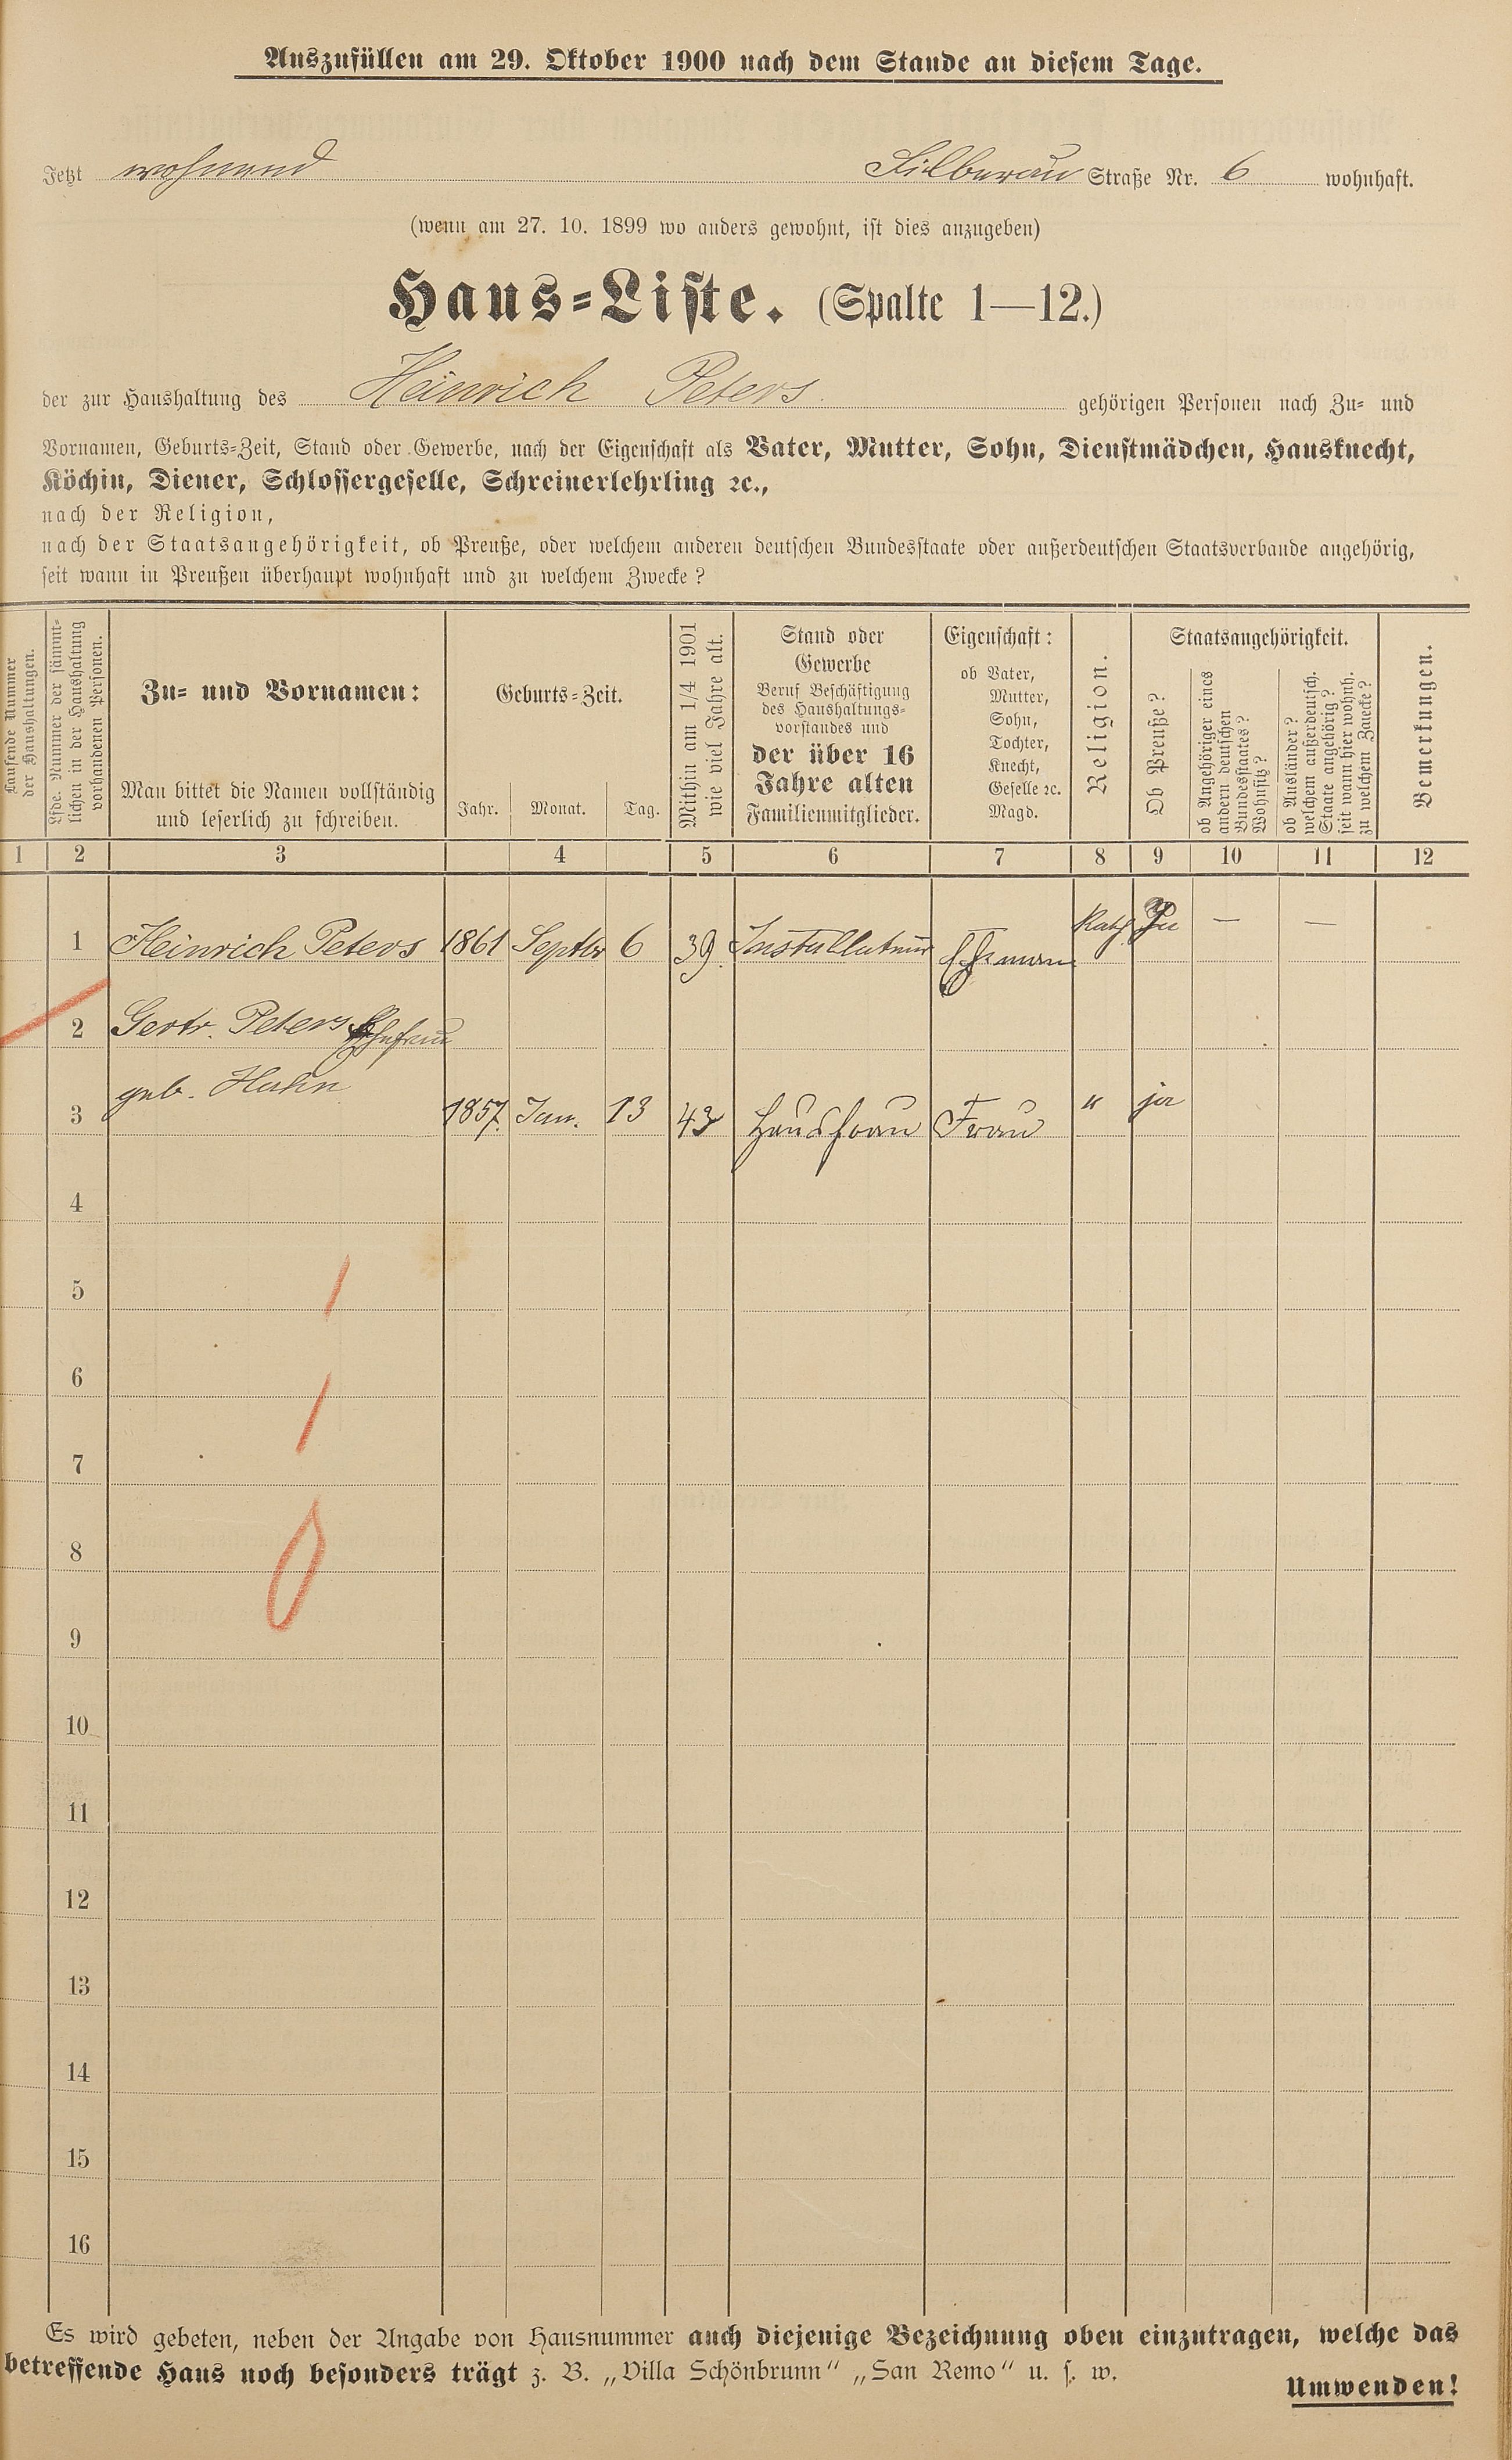 Auszufüllen am 29. Oktober 1900 nach dem Stande an diesem Tage.
Jetzt wohnend Straße Nr. 6 wohnhaft.
(wenn am 27. 10. 1899 wo anders gewohnt, ist dies anzugeben)
Haus-Liste. (Spalte 1—12.)
der zur Haushaltung des Heinrich Peters gehörigen Personen nach Zu- und
Vornamen, Geburts-Zeit, Stand oder Gewerbe, nach der Eigenschaft als Vater, Mutter, Sohn, Dienstmädchen, Hausknecht,
Köchin, Diener, Schlossergeselle, Schreinerlehrling ꝛc.,
nach der Religion,
nach der Staatsangehörigkeit, ob Preuße, oder welchem anderen deutschen Bundesstaate oder außerdeutschen Staatsverbande angehörig,
seit wann in Preußen überhaupt wohnhaft und zu welchem Zwecke?
Laufende Nummer
der Haushaltungen.
Lfde. Nummer der sämmt-
lichen in der Haushaltung
vorhandenen Personen.
Zu- und Vornamen:
Man bittet die Namen vollständig
und leserlich zu schreiben.
Geburts-Zeit.
Jahr. Monat. Tag.
Mithin am 1/4 1901
wie viel Jahre alt.
Stand oder
Gewerbe
Beruf Beschäftigung
des Haushaltungs-
vorstandes und
der über 16
Jahre alten
Familienmitglieder.
Eigenschaft:
ob Vater,
Mutter,
Sohn,
Tochter,
Knecht,
Geselle ꝛc.
Magd.
Religion.
Staatsangehörigkeit.
Ob Preuße?
ob Angehöriger eines
andern deutschen
Bundesstaates?
Wohnsitz?
ob Ausländer?
welchem außerdeutsch.
Staate angehörig?
seit wann hier wohnh.
zu welchem Zwecke?
Bemerkungen.
1 2 3 4 5 6 7 8 9 10 11 12
1 Heinrich Peters 1861 Septbr 6 39 Installateur Ehemann Kath — —
2 Gertr. Peters Ehefrau
geb. Hahn
3 1857. Jan. 13 43 Hausfrau Frau " ja
4
5
6
7
8
9
10
11
12
13
14
15
16
Es wird gebeten, neben der Angabe von Hausnummer auch diejenige Bezeichnung oben einzutragen, welche das
betreffende Haus noch besonders trägt z. B. „Villa Schönbrunn" „San Remo" u. s. w.
Umwenden!